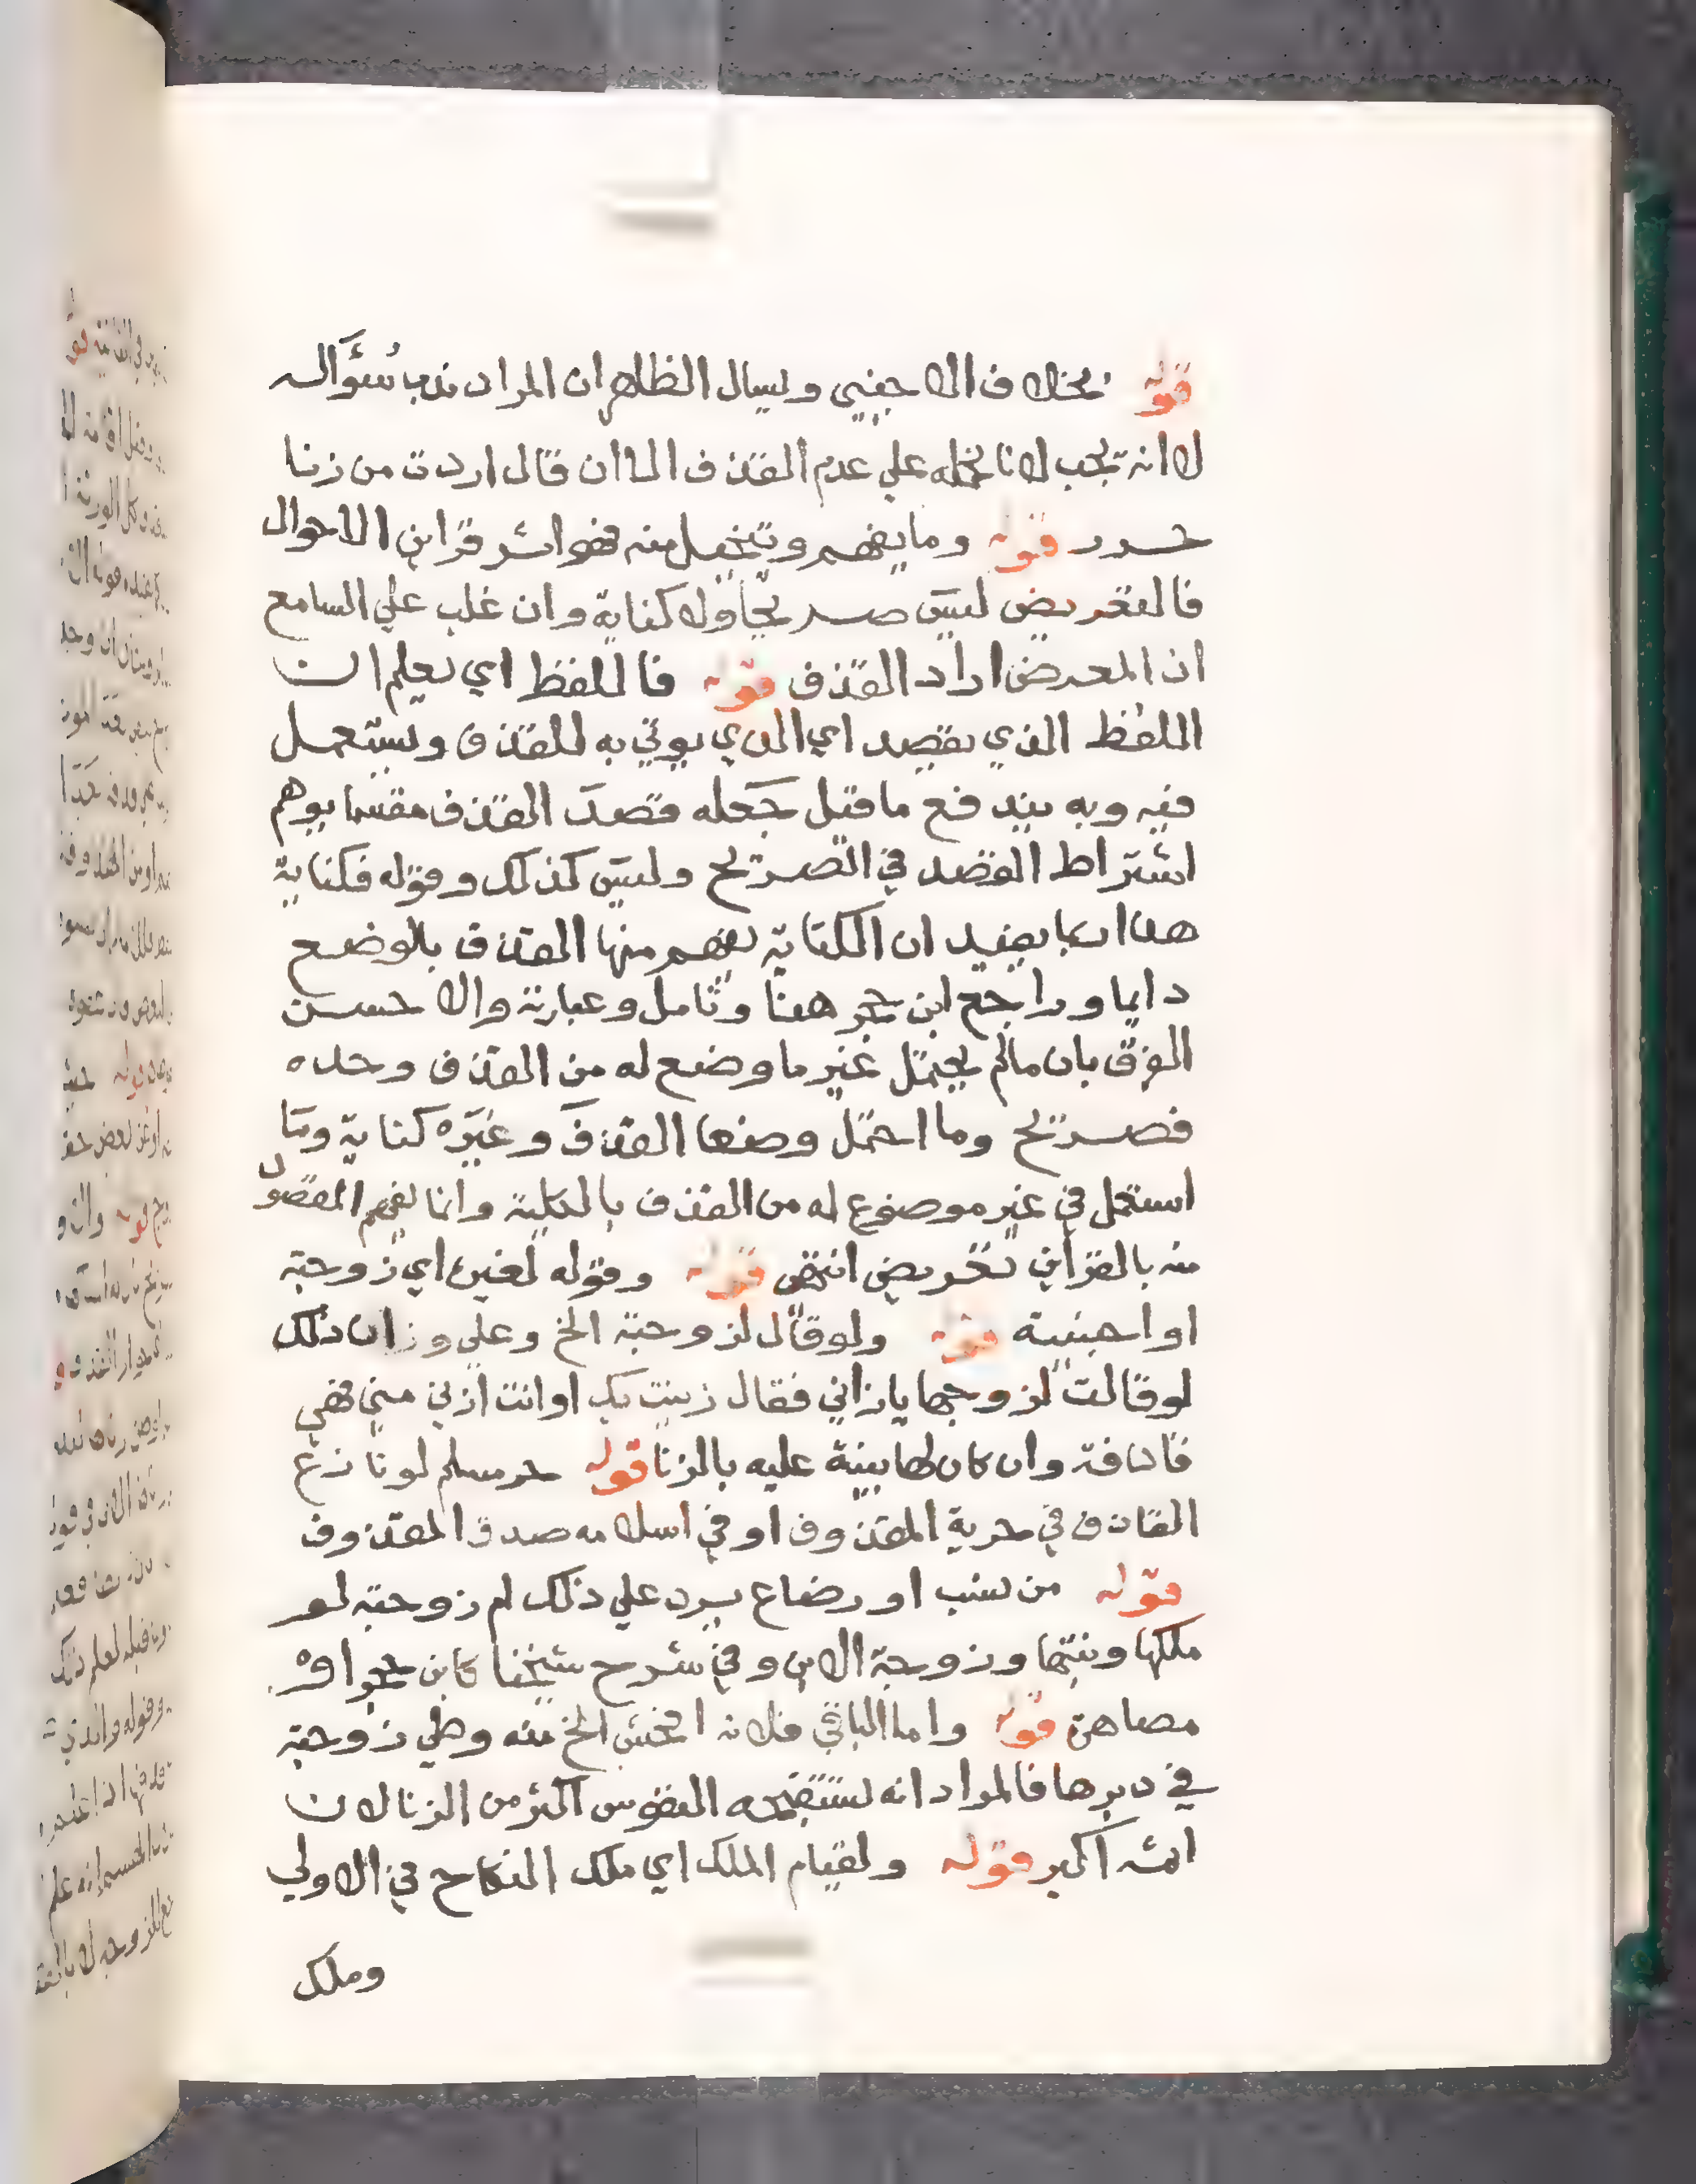 قوله بخلاف الاجنبي ويسال الظاهر ان المراد ندب سؤاله
لا انه يجب لانا نحمله علي عدم القذف الا ان قال اردت من زنا
حرر قوله وما يفهم ويتخيل منه فهو اثر قراين الاحوال
فالتعريض ليس صريحا ولا كناية وان غلب علي السامع
ان المعرض اراد القذف قوله فاللفظ اي يعلم ان
اللفظ الذي يقصد اي الذي يوتي به للقذف ويستعمل
فيه وبه يندفع ما قيل جعله قصد القذف مقسما يوهم
اشتراط القصد في الصريح وليس كذلك وقوله فكناية
هذا انما يفيد ان الكناية يفهم منها القذف بالوضع
دايما وراجع ابن حجر هنا وتامل وعبارته والاحسن
الفرق بان مالم يحتمل غير ما وضع له من القذف وحده
فصريح وما احتمل وضعا القذف وغيره كناية وما
استعمل في غير موضوع له من القذف بالكلية وانما يفهم المقصود
منه بالقراين تعريض انتهي قوله وقوله لغيره اي زوجته
او اجنبية قوله ولو قال لزوجته الخ وعلي وزان ذلك
لو قالت لزوجها يا زاني فقال زنيت بك او انت ازني مني فهي
قاذفة وان كان لها بينة عليه بالزنا قوله حر مسلم لو نازع
القاذف في حرية المقذوف او في اسلامه صدق المقذوف
قوله من نسب او رضاع يرد علي ذلك ام زوجته لو
ملكها وبنتها وزوجة الابن وفي شرح شيخنا كابن حجر او
مصاهرة قوله واما الباقي فلانه افحش الخ منه وطي زوجته
في دبرها فالمراد انه تستقبحه النفوس اكثر من الزنا لان
اثمه اكبر قوله ولقيام الملك اي ملك النكاح في الاولي
وملك